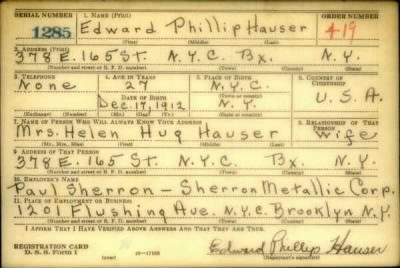 SERIAL NUMBER 1. NAME (Print) ORDER NUMBER
1285 Edward Phillip Hauser 419
(First) (Middle) (Last)
2. ADDRESS (Print)
378 E. 165 St. N.Y.C. Bx. N.Y.
(Number and street or R. F. D. number) (Town) (County) (State)
3. TELEPHONE 4. AGE IN YEARS 5. PLACE OF BIRTH 6. COUNTRY OF CITIZENSHIP
None 27 N.Y.C.
DATE OF BIRTH (Town or county) U.S.A.
Dec. 17, 1912 N.Y.
(Exchange) (Number) (Mo.) (Day) (Yr.) (State or country)
7. NAME OF PERSON WHO WILL ALWAYS KNOW YOUR ADDRESS 8. RELATIONSHIP OF THAT PERSON
Mrs. Helen Hug Hauser Wife
(Mr., Mrs., Miss) (First) (Middle) (Last)
9. ADDRESS OF THAT PERSON
378 E. 165 St. N.Y.C. Bx. N.Y.
(Number and street or R. F. D. number) (Town) (County) (State)
10. EMPLOYER'S NAME
Paul Sherron - Sherron Metallic Corp.
11. PLACE OF EMPLOYMENT OR BUSINESS
1201 Flushing Ave. N.Y.C. Brooklyn N.Y.
(Number and street or R. F. D. number) (Town) (County) (State)
I AFFIRM THAT I HAVE VERIFIED ABOVE ANSWERS AND THAT THEY ARE TRUE.
REGISTRATION CARD
D. S. S. Form 1 (over) Edward Phillip Hauser
(Registrant's signature)